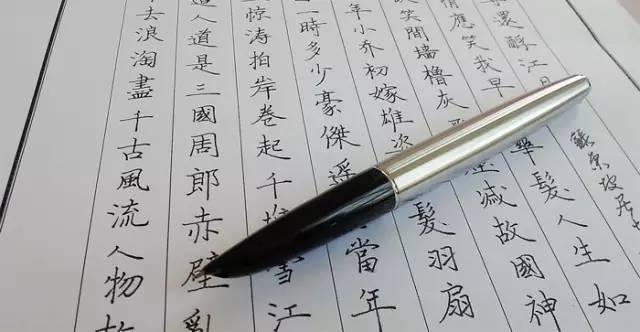 去浪淘盡千古風流人物故
人道是三國周郎赤壁亂
惊涛拍岸卷起千堆雪江
一時多少豪傑遥當年
年小乔初嫁雄姿髮羽扇
笑間墙櫓灰滅故國神
情應笑我早華髮人生如
還酹江月